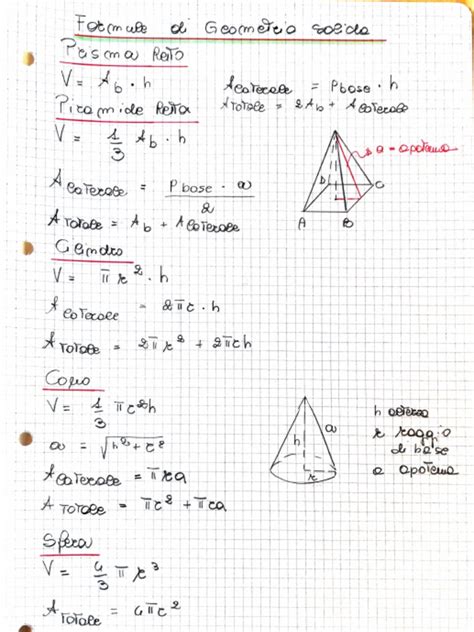 Formule di Geometria solida
Prisma Retto
V = Ab · h
Alaterale = Pbase · h
Atotale = 2Ab + Alaterale
Piramide Retta
V = 1/3 Ab · h
a = apotema
D C
A B
Alaterale = Pbase · a / 2
Atotale = Ab + Alaterale
Cilindro
V = πr² · h
Alaterale = 2πr · h
Atotale = 2πr² + 2πrh
Cono
V = 1/3 πr²h
a = √h²+r²
Alaterale = πra
Atotale = πr² + πra
h a
r
h altezza
r raggio
di base
a apotema
Sfera
V = 4/3 πr³
Atotale = 4πr²